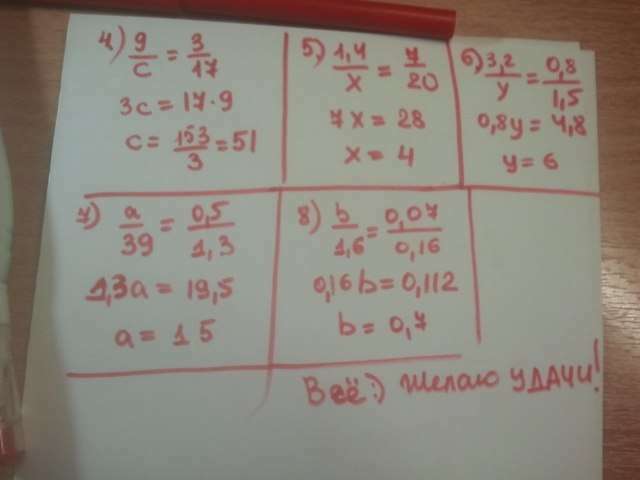 4) 9/c = 3/17
3c = 17·9
c = 153/3 = 51
5) 1,4/x = 7/20
7x = 28
x = 4
6) 3,2/y = 0,8/1,5
0,8y = 4,8
y = 6
7) a/39 = 0,5/1,3
1,3a = 19,5
a = 15
8) b/1,6 = 0,07/0,16
0,16b = 0,112
b = 0,7
Всё:) Желаю УДАЧИ!